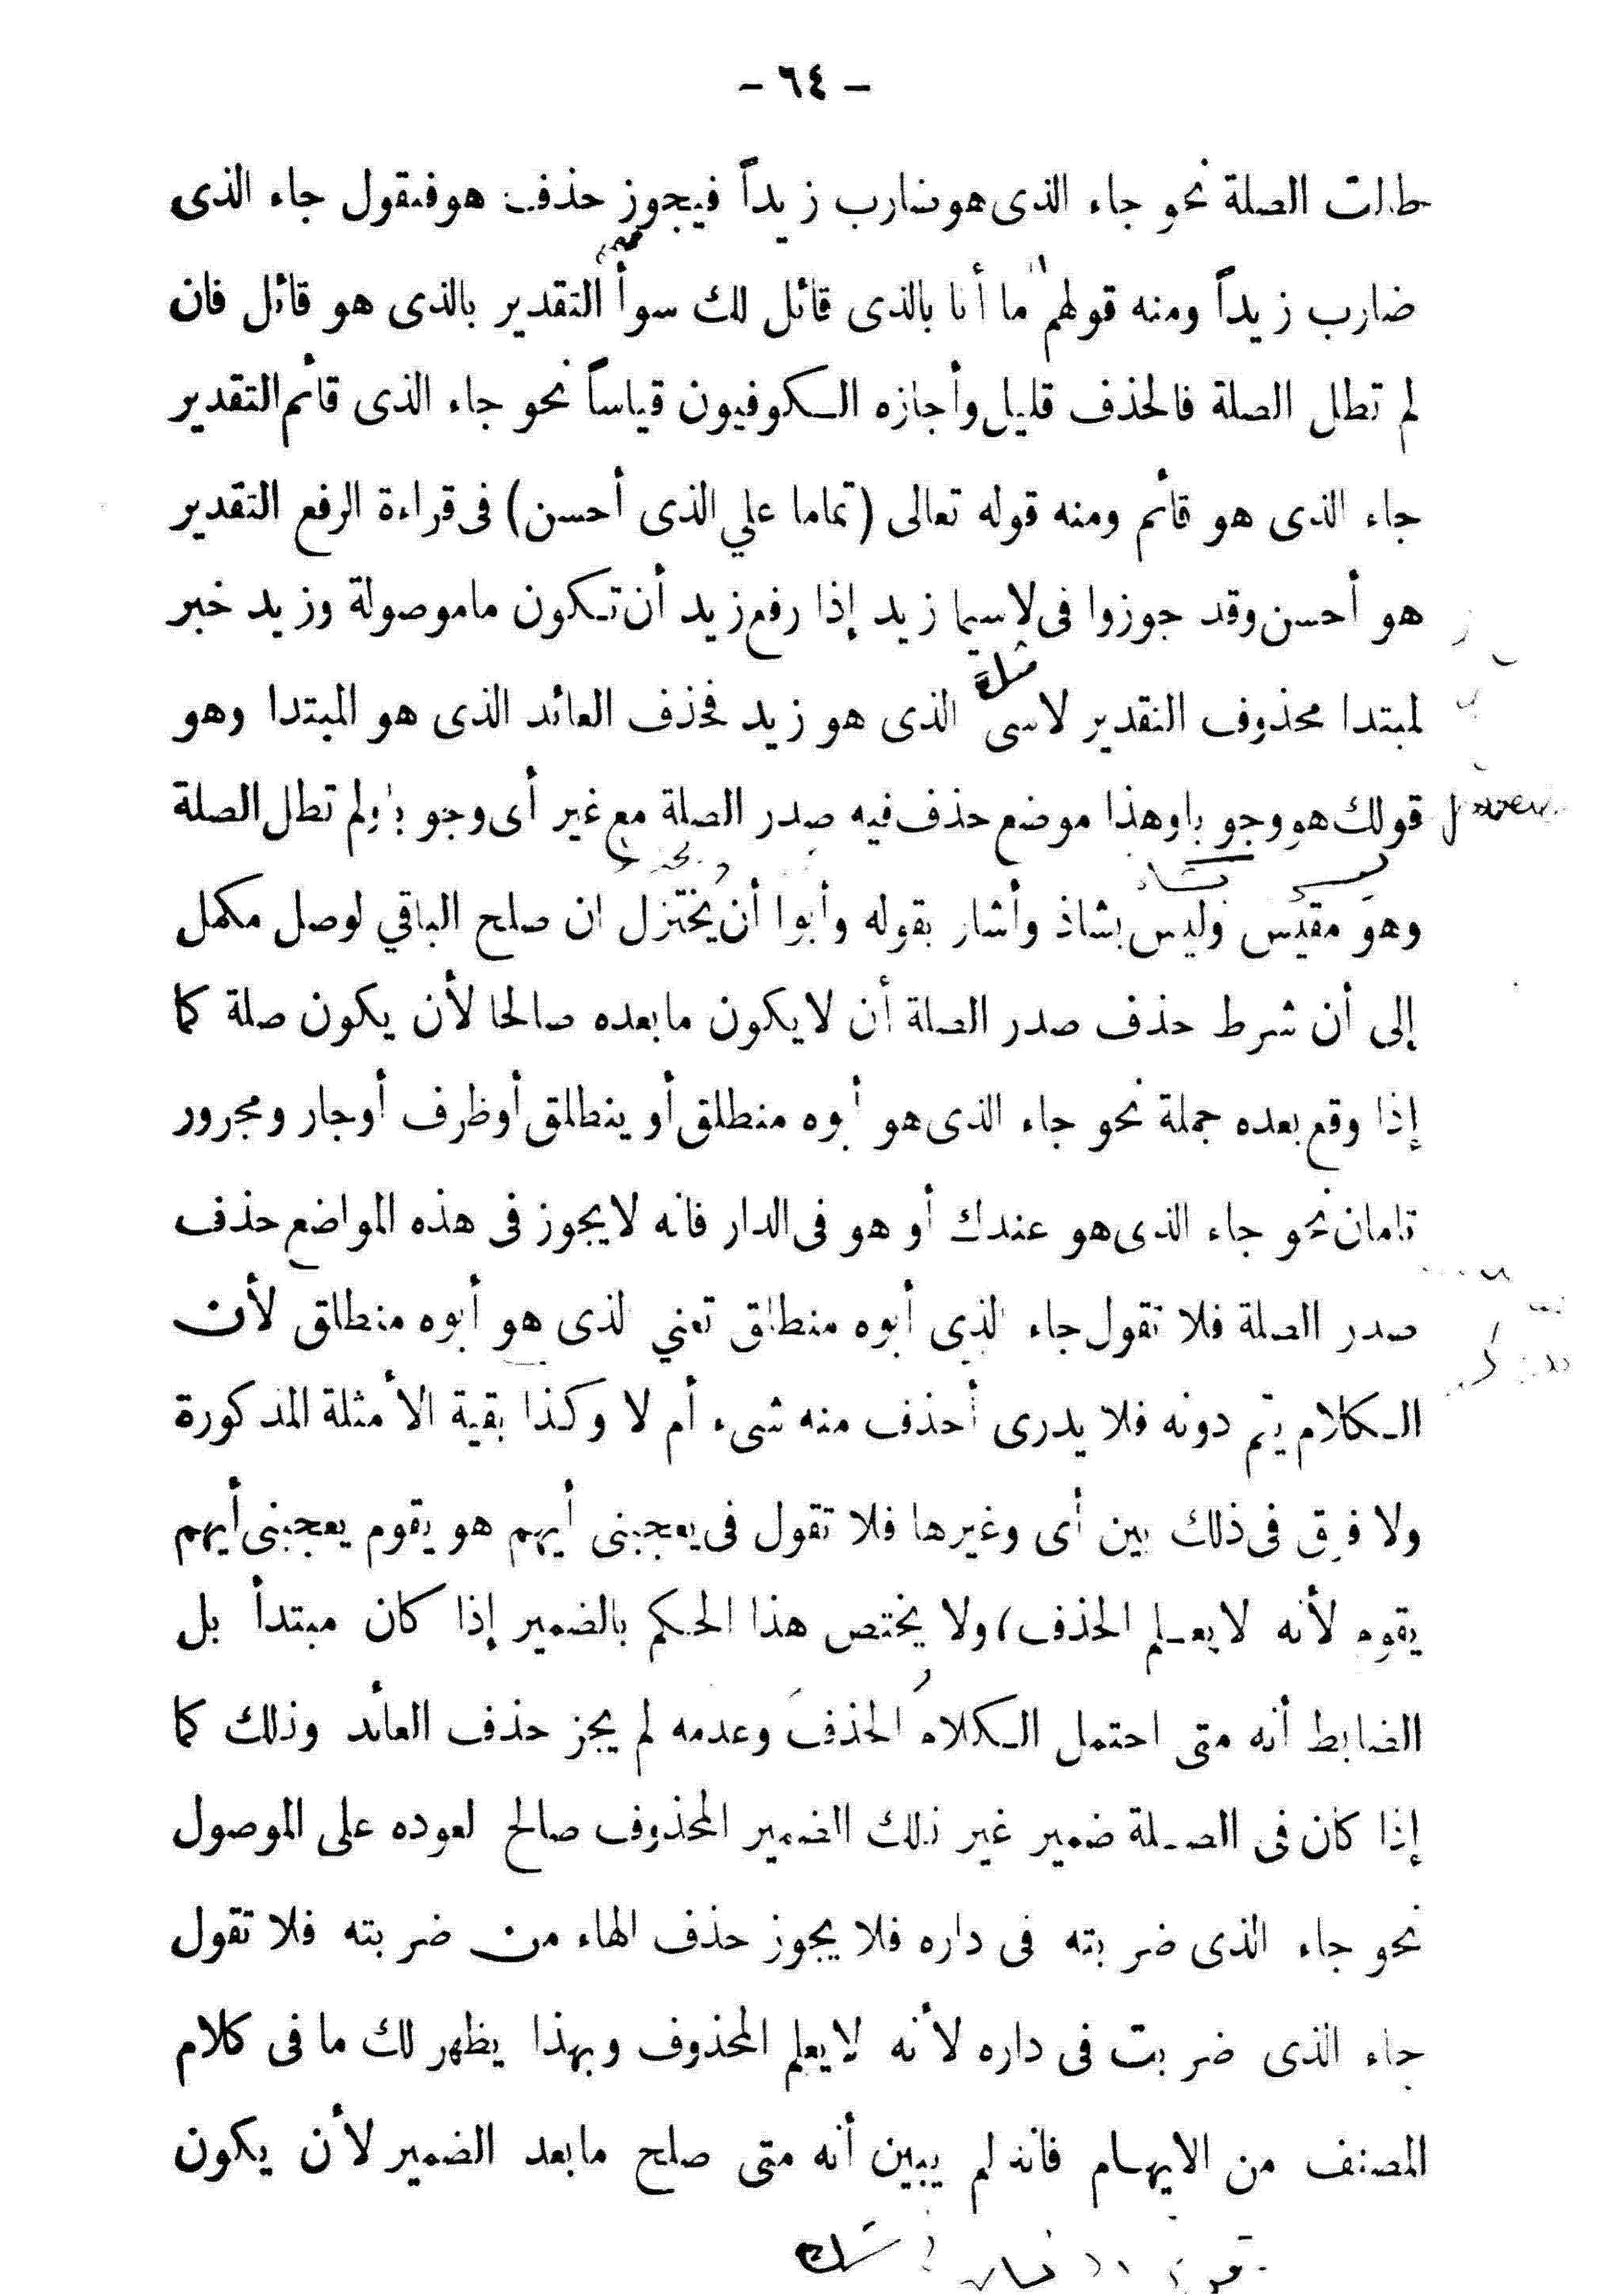 - ٦٤ -
طالت الصلة نحو جاء الذى هو ضارب زيداً فيجوز حذف هو فتقول جاء الذى
ضارب زيداً ومنه قولهم ما أنا بالذى قائل لك سوأ التقدير بالذى هو قائل فان
لم تطل الصلة فالحذف قليل وأجازه الكوفيون قياساً نحو جاء الذى قائم التقدير
جاء الذى هو قائم ومنه قوله تعالى (تماما علي الذى أحسن) فى قراءة الرفع التقدير
هو أحسن وقد جوزوا فى لاسيما زيد إذا رفع زيد أن تكون ما موصولة وزيد خبر
لمبتدا محذوف التقدير لاسى الذى هو زيد فحذف العائد الذى هو المبتدا وهو
قولك هو وجوبا وهذا موضع حذف فيه صدر الصلة مع غير أى وجوبا ولم تطل الصلة
وهو مقيس وليس بشاذ وأشار بقوله وأبوا أن يُختزل ان صلح الباقي لوصل مكمل
إلى أن شرط حذف صدر الصلة أن لا يكون ما بعده صالحا لأن يكون صلة كما
إذا وقع بعده جملة نحو جاء الذى هو أبوه منطلق أو ينطلق أو ظرف أو جار ومجرور
تامان نحو جاء الذى هو عندك أو هو فى الدار فانه لا يجوز فى هذه المواضع حذف
صدر الصلة فلا تقول جاء الذى أبوه منطلق تعني الذى هو أبوه منطلق لأن
الكلام يتم دونه فلا يدرى أحذف منه شىء أم لا وكذا بقية الأمثلة المذكورة
ولا فرق فى ذلك بين أى وغيرها فلا تقول فى يعجبنى أيهم هو يقوم يعجبنى أيهم
يقوم لأنه لا يعلم الحذف، ولا يختص هذا الحكم بالضمير إذا كان مبتدأ بل
الضابط أنه متى احتمل الكلام الحذف وعدمه لم يجز حذف العائد وذلك كما
إذا كان فى الصلة ضمير غير ذلك الضمير المحذوف صالح لعوده على الموصول
نحو جاء الذى ضربته فى داره فلا يجوز حذف الهاء من ضربته فلا تقول
جاء الذى ضربت فى داره لأنه لا يعلم المحذوف وبهذا يظهر لك ما فى كلام
المصنف من الايهام فانه لم يبين أنه متى صلح ما بعد الضمير لأن يكون